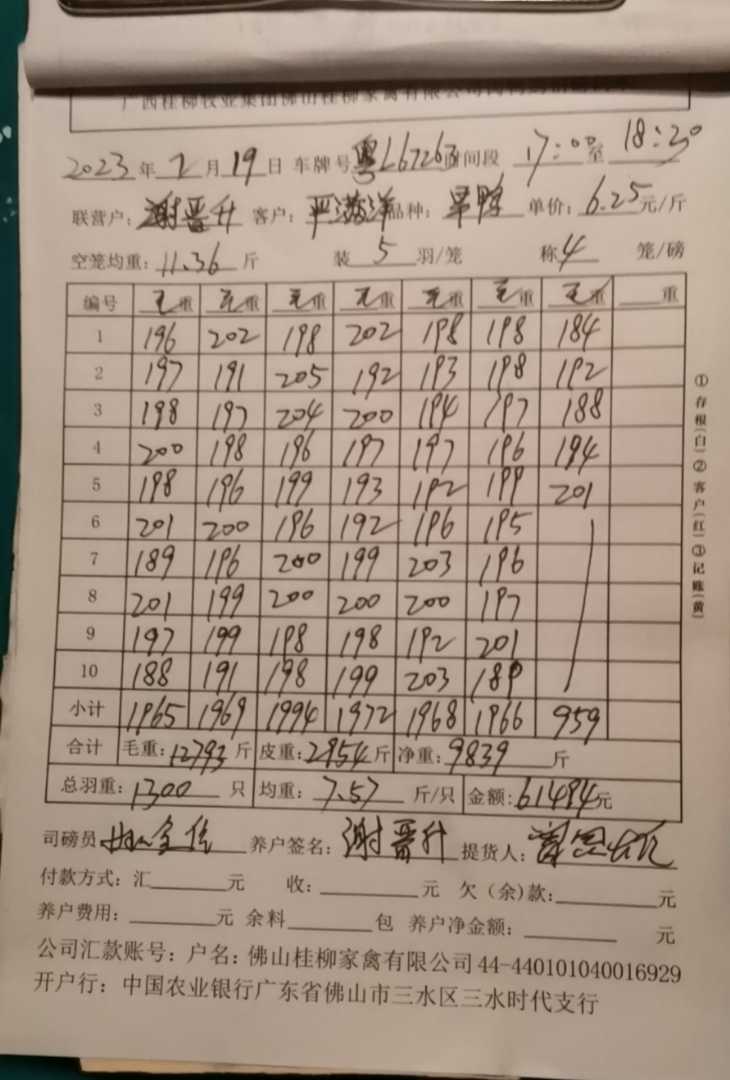 2023年2月19日 车牌号粤L67263时间段 17:00至18:30
联营户:谢晋升 客户: 品种: 单价:6.25元/斤
空笼均重:11.36斤 装5羽/笼 称4笼/磅
编号 毛重 毛重 毛重 毛重 毛重 毛重 毛重 重
1 196 202 198 202 198 198 184
2 197 191 205 192 193 198 192
3 198 197 204 200 194 197 188
4 200 198 196 197 197 196 194
5 198 196 199 193 192 199 201
6 201 200 196 192 196 195
7 189 196 200 199 203 196
8 201 199 200 200 200 197
9 197 199 198 198 192 201
10 188 191 198 199 203 189
小计 1965 1969 1994 1972 1968 1966 959
合计 毛重:12793斤 皮重:2954斤 净重:9839斤
总羽重:1300只 均重:7.57斤/只 金额:61494元
司磅员 养户签名:谢晋升 提货人:
付款方式:汇 元 收: 元 欠(余)款: 元
养户费用: 元 余料 包 养户净金额: 元
公司汇款账号:户名:佛山桂柳家禽有限公司44-440101040016929
开户行:中国农业银行广东省佛山市三水区三水时代支行
①存根(白)②客户(红)③记账(黄)